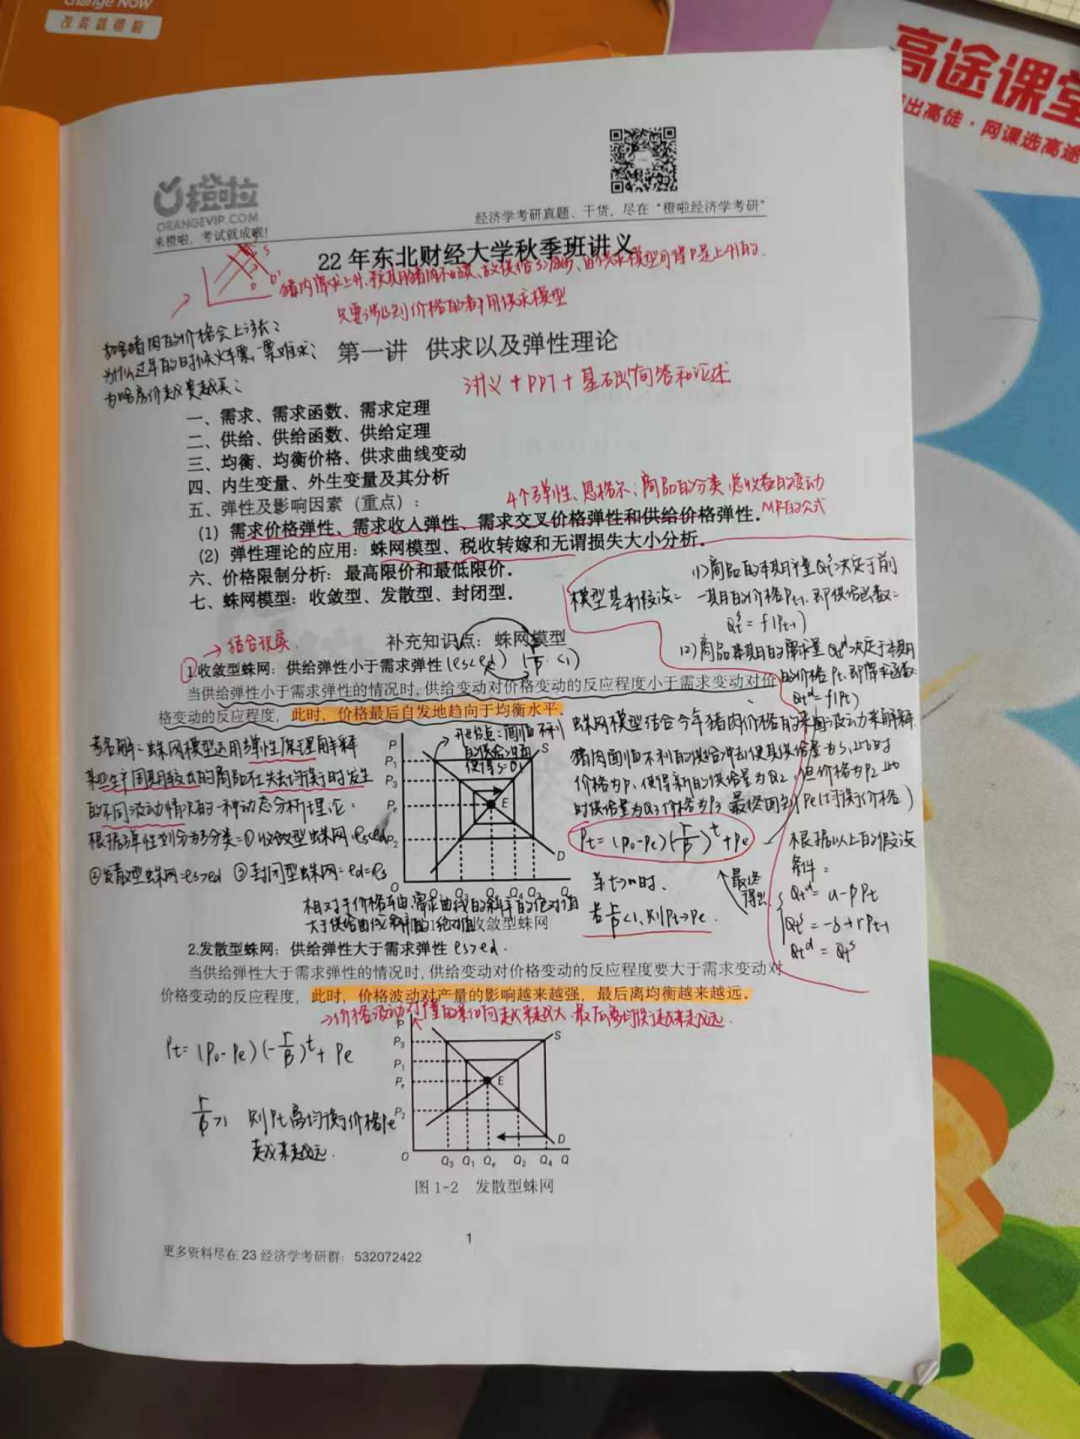 change Now
改变就橙啦
高途课堂
出高徒·网课选高途
橙啦
ORANGEVIP.COM
来橙啦,考试就成啦!
经济学考研真题、干货,尽在“橙啦经济学考研”
22 年东北财经大学秋季班讲义
只要涉及到价格的都用供求模型
如果猪肉的价格会上涨?
为什么过年的时候火车票一票难求?
为啥房价越贵越买?
第一讲 供求以及弹性理论
讲义+PPT+基础简答和论述
一、需求、需求函数、需求定理
二、供给、供给函数、供给定理
三、均衡、均衡价格、供求曲线变动
四、内生变量、外生变量及其分析
五、弹性及影响因素(重点):
4个弹性、恩格尔;商品的分类,总收益的变动
MR的公式
(1) 需求价格弹性、需求收入弹性、需求交叉价格弹性和供给价格弹性.
(2) 弹性理论的应用:蛛网模型、税收转嫁和无谓损失大小分析.
六、价格限制分析:最高限价和最低限价.
七、蛛网模型:收敛型、发散型、封闭型.
模型基本假设:
(1)商品的本期产量Qts决定于前
一期的价格Pt-1,即供给函数=
Qts=f(Pt-1)
(2)商品本期的需求量Qtd决定于本期
的价格Pt,即需求函数=
Qtd=f(Pt)
→结合现实
补充知识点:蛛网模型
1.收敛型蛛网:供给弹性小于需求弹性(es<ed) (r/β<1)
当供给弹性小于需求弹性的情况时,供给变动对价格变动的反应程度小于需求变动对价
格变动的反应程度,此时,价格最后自发地趋向于均衡水平.
名解=蛛网模型运用弹性原理解释
某些生产周期较长的商品在失去均衡时发生
的不同波动情况的一种动态分析理论:
根据弹性划分为3分类=①收敛型蛛网:es<ed
②发散型蛛网=es>ed ③封闭型蛛网=ed=es
开始点:面临不利
的供给冲击
使得S=Q1
P
P1
P3
Pe
P2
S
E
D
O
蛛网模型结合今年猪肉价格的来回波动来解释
猪肉面临不利的供给冲击使其供给量为S1,此时
价格为P1使得新的供给量为Q2,但价格为P2此
时供给量为Q3价格为P3最终回到Pe(均衡价格)
Pt=(P0-Pe)(-r/β)^t+Pe
当t→∞时.
若r/β<1,则Pt→Pe.
最终
得出
根据以上的假设
条件:
Qtd=α-βPt
Qts=-δ+rPt-1
Qtd=Qts
相对于价格轴,需求曲线的斜率的绝对值
大于供给曲线斜率的绝对值
收敛型蛛网
2.发散型蛛网:供给弹性大于需求弹性 es>ed.
当供给弹性大于需求弹性的情况时,供给变动对价格变动的反应程度要大于需求变动对
价格变动的反应程度,此时,价格波动对产量的影响越来越强,最后离均衡越来越远.
→价格波动对产量的影响越来越大,最后离均衡越来越远.
Pt=(P0-Pe)(-r/β)^t+Pe
r/β>1 则Pt离均衡价格Pe
越来越远.
P
P3
P1
Pe
P2
S
E
D
O Q3 Q1 Qe Q2 Q4 Q
图 1-2 发散型蛛网
1
更多资料尽在 23 经济学考研群:532072422